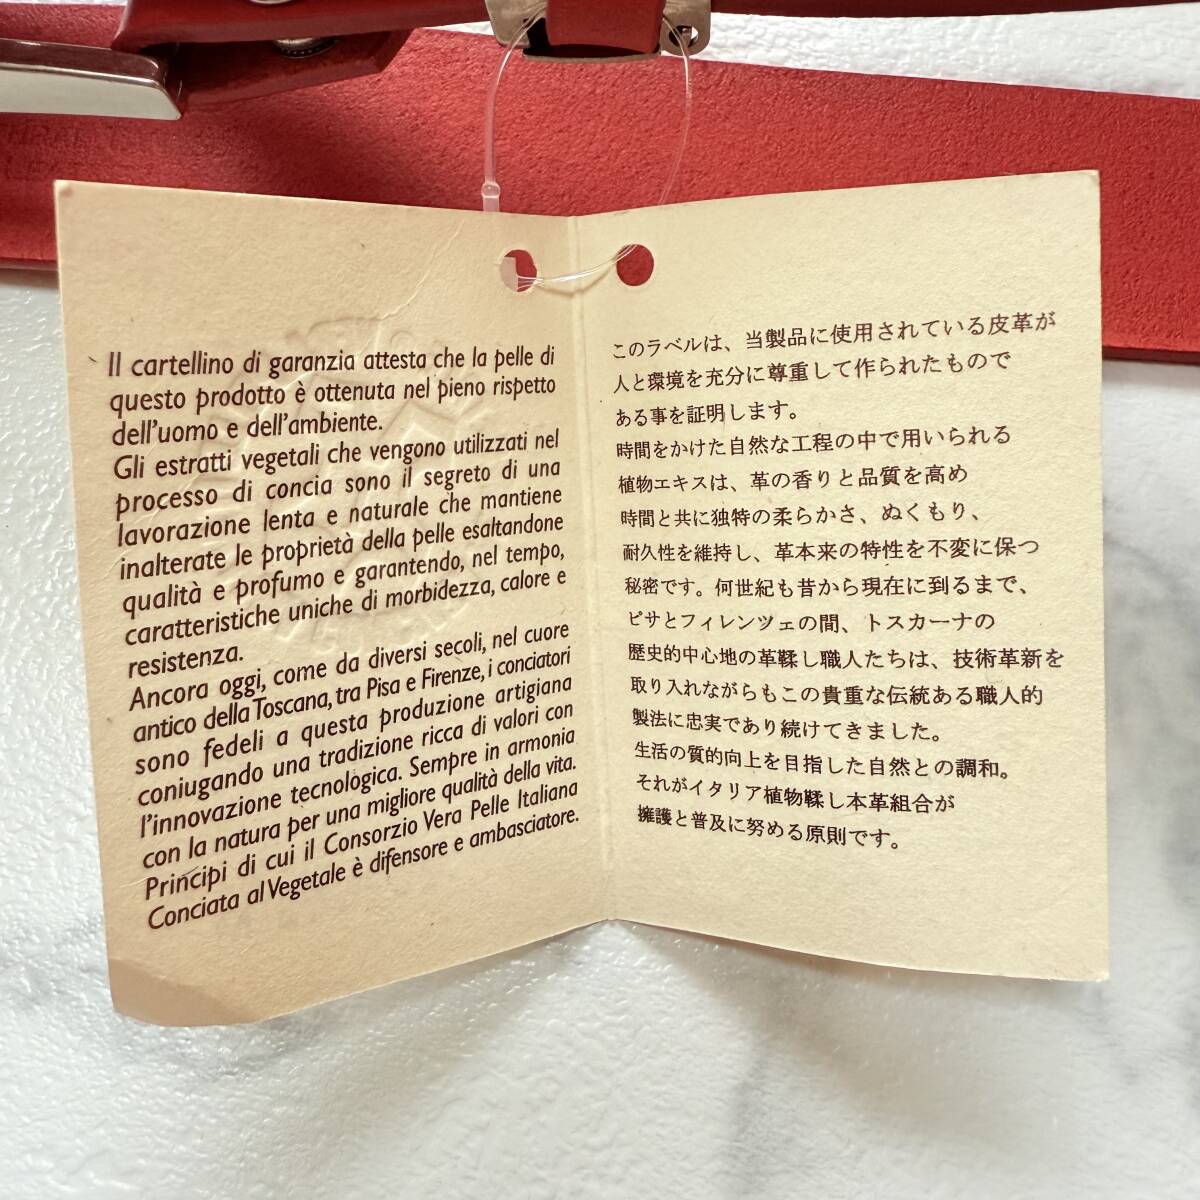 Il cartellino di garanzia attesta che la pelle di
questo prodotto è ottenuta nel pieno rispetto
dell'uomo e dell'ambiente.
Gli estratti vegetali che vengono utilizzati nel
processo di concia sono il segreto di una
lavorazione lenta e naturale che mantiene
inalterate le proprietà della pelle esaltandone
qualità e profumo e garantendo, nel tempo,
caratteristiche uniche di morbidezza, calore e
resistenza.
Ancora oggi, come da diversi secoli, nel cuore
antico della Toscana, tra Pisa e Firenze, i conciatori
sono fedeli a questa produzione artigiana
coniugando una tradizione ricca di valori con
l'innovazione tecnologica. Sempre in armonia
con la natura per una migliore qualità della vita.
Principi di cui il Consorzio Vera Pelle Italiana
Conciata al Vegetale è difensore e ambasciatore.
このラベルは、当製品に使用されている皮革が
人と環境を充分に尊重して作られたもので
ある事を証明します。
時間をかけた自然な工程の中で用いられる
植物エキスは、革の香りと品質を高め
時間と共に独特の柔らかさ、ぬくもり、
耐久性を維持し、革本来の特性を不変に保つ
秘密です。何世紀も昔から現在に到るまで、
ピサとフィレンツェの間、トスカーナの
歴史的中心地の革鞣し職人たちは、技術革新を
取り入れながらもこの貴重な伝統ある職人的
製法に忠実であり続けてきました。
生活の質的向上を目指した自然との調和。
それがイタリア植物鞣し本革組合が
擁護と普及に努める原則です。